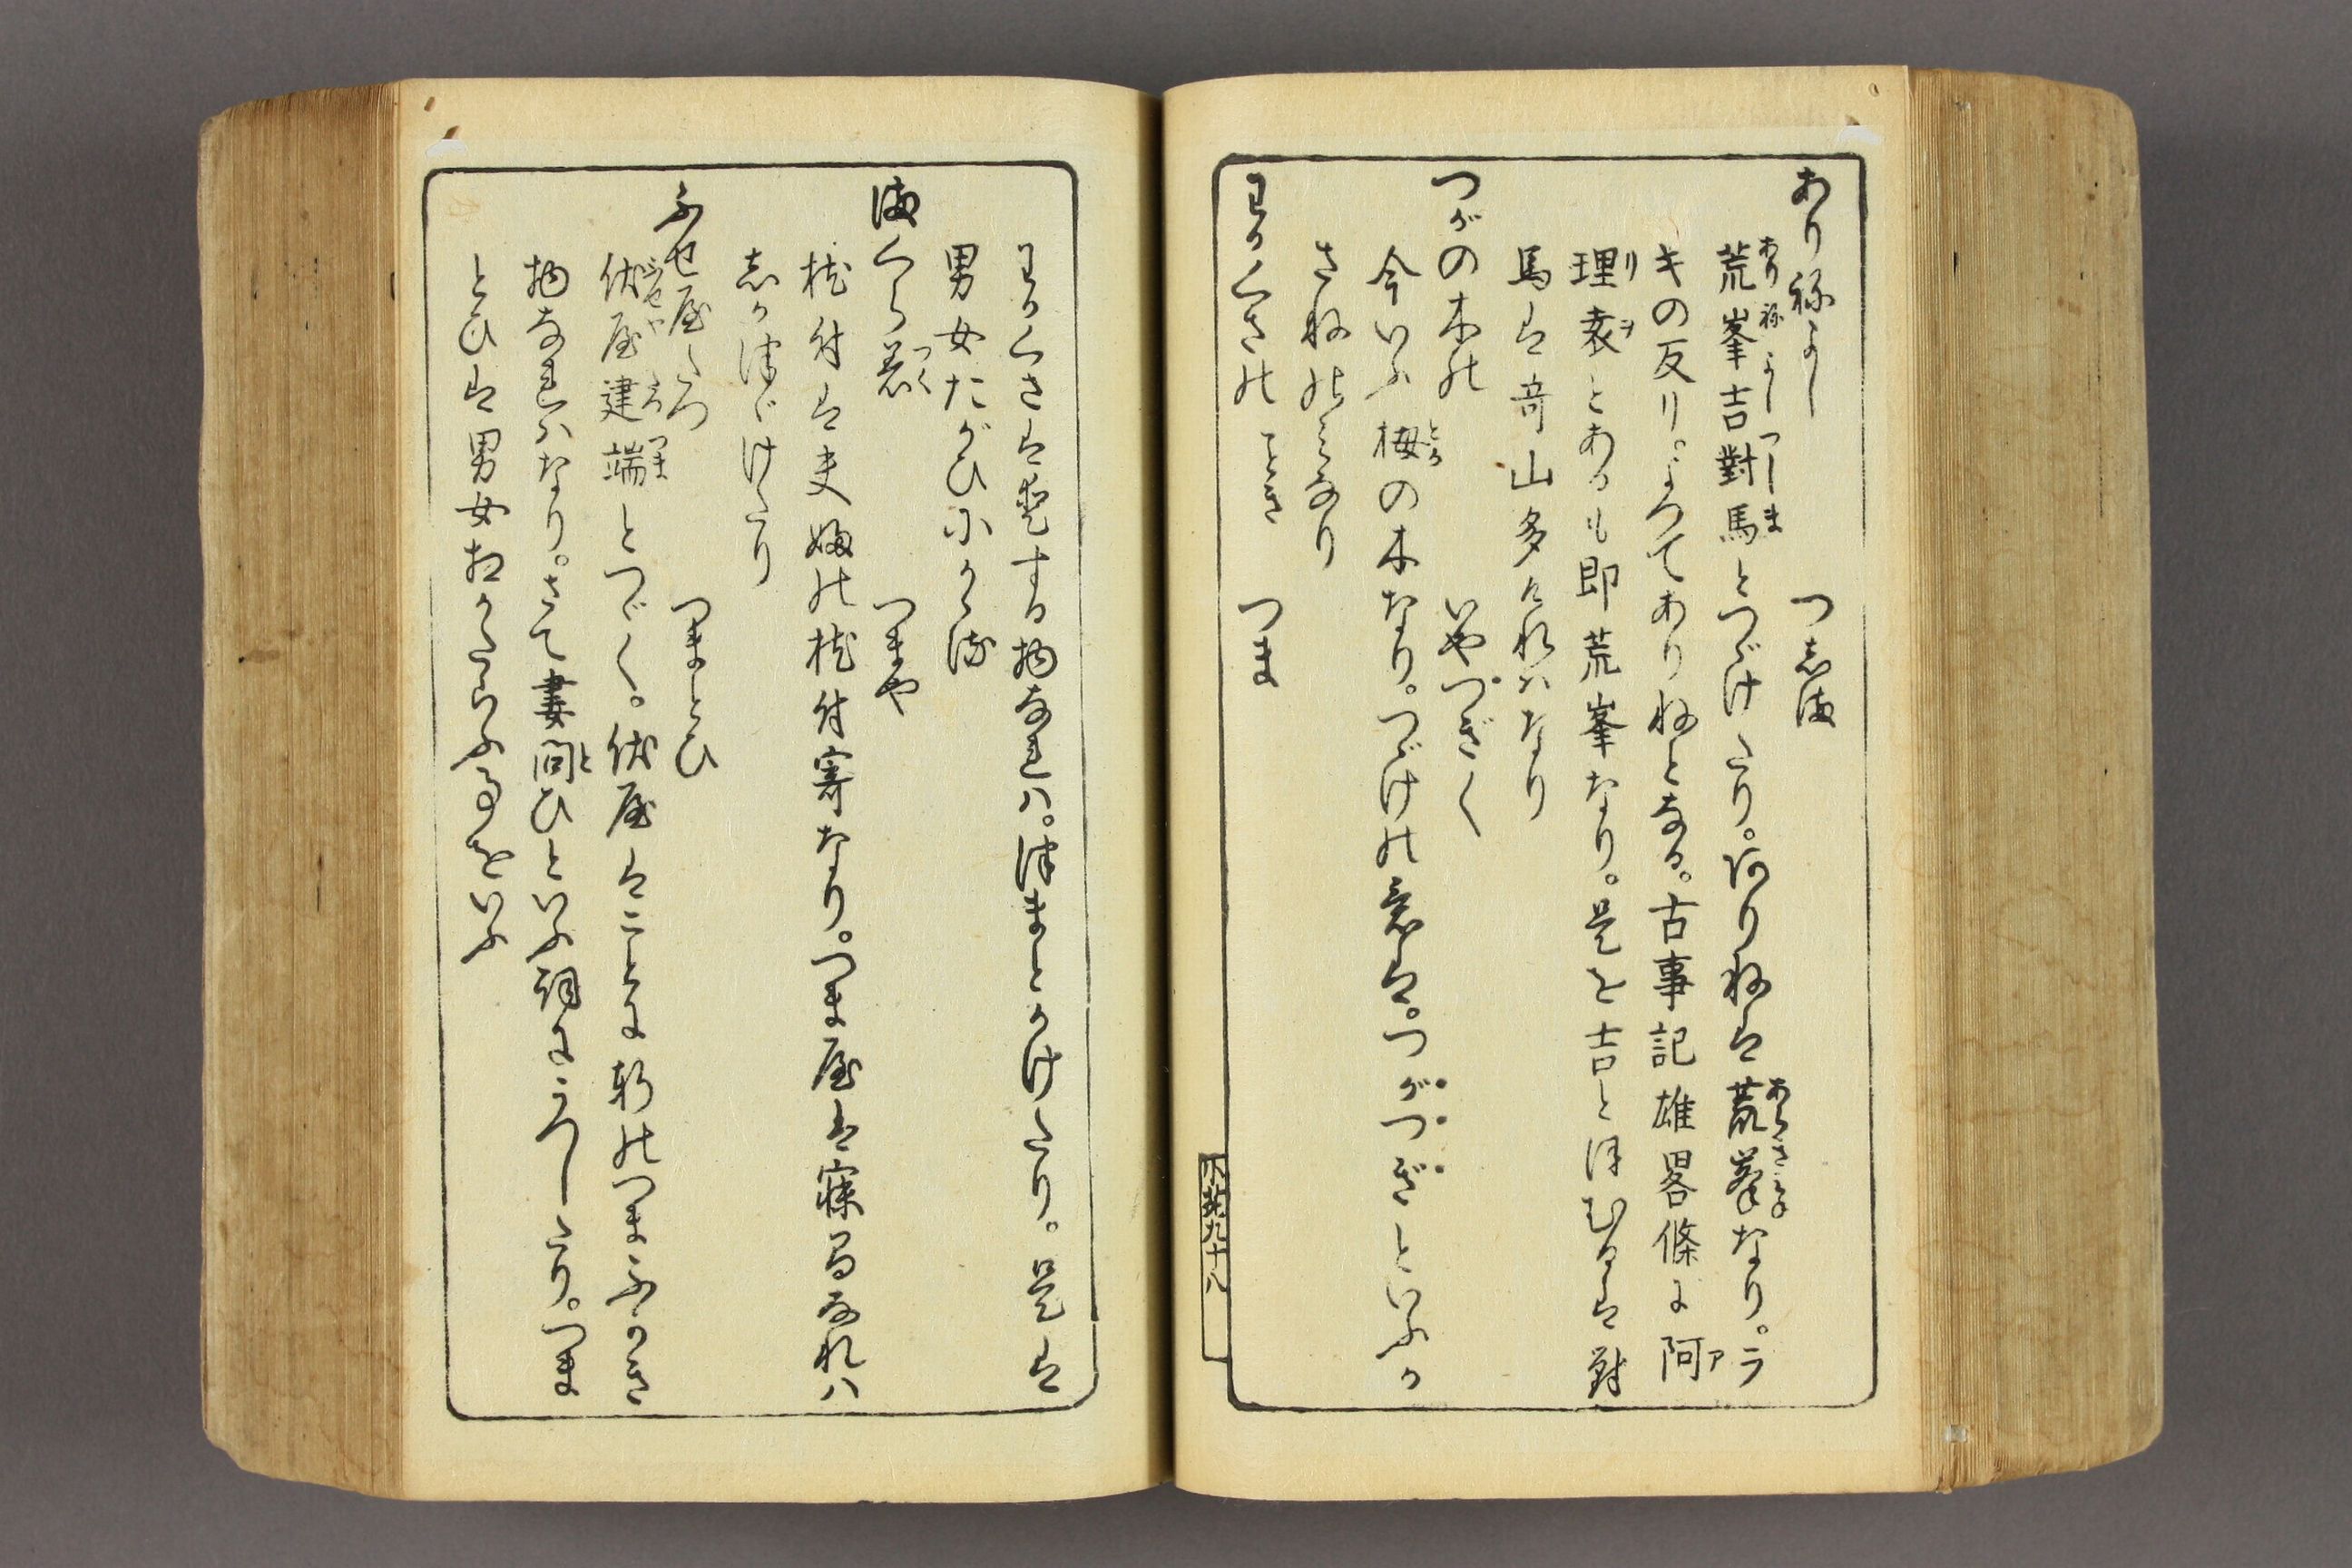 あり祢よし　つしま
荒峯吉對馬とつゞけたり。ありねは荒峯なり。ラ
キの反リ。よつてありねとなる。古事記雄畧條に阿
理袁とあるも即荒峯なり。是を吉とほむるは對
馬は奇山多ければなり
つがの木の　いやつぎ〱
今いふ栂の木なり。つゞけの意は。つがつぎといふか
さねのみなり
わかくさの　つま
わかくさは愛する物なれは。つまとかけたり。是は
男女たがひにかゝる
まくら着　つまや
枕付は夫婦の枕付寄なり。つま屋は寐る間なれハ
しかつゞけたり
ふせ屋たつ　つまとひ
伏屋建端とつゞく。伏屋はことに軒のつまふかき
物なれハなり。さて妻問ひといふ詞にうつしたり。つま
とひは男女相かたらふ事をいふ
九十八